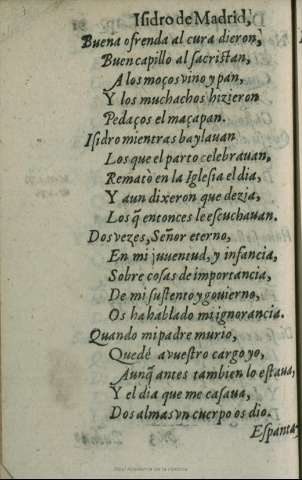 Isidro de Madrid,
Buena ofrenda al cura dieron,
Buen capillo al sacristan,
A los moços vino y pan,
Y los muchachos hizieron
Pedaços el maçapan.
Isidro mientras baylauan
Los que el parto celebrauan,
Rematò en la Iglesia el dia,
Y aun dixeron que dezia,
Los q̃ entonces le escuchauan.
Dos vezes, Señor eterno,
En mi juuentud, y infancia,
Sobre cosas de importancia,
De mi sustento y gouierno,
Os ha hablado mi ignorancia.
Quando mi padre murio,
Quedè a vuestro cargo yo,
Aunq̃ antes tambien lo estaua,
Y el dia que me casaua,
Dos almas vn cuerpo os dio.
Espanta-
Real Academia de la Historia